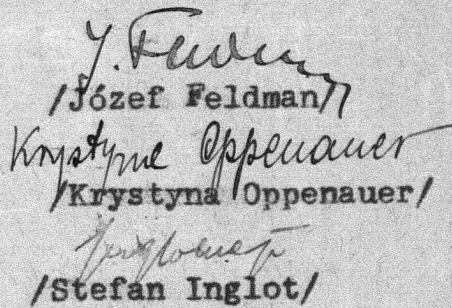 J. Feldman
/Józef Feldman/
Krystyna Oppenauer
/Krystyna Oppenauer/
/Stefan Inglot/